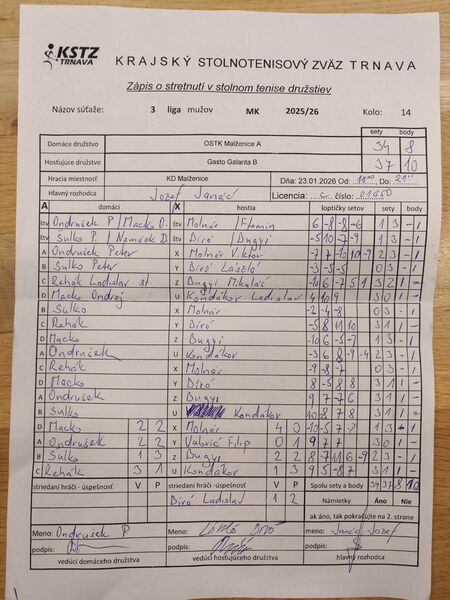 KSTZ
TRNAVA
KRAJSKÝ STOLNOTENISOVÝ ZVÄZ TRNAVA
Zápis o stretnutí v stolnom tenise družstiev
Názov súťaže: 3 liga mužov MK 2025/26 Kolo: 14
sety body
Domáce družstvo OSTK Malženice A 34 8
Hosťujúce družstvo Gasto Galanta B 37 10
Hracia miestnosť KD Malženice Dňa: 23.01.2026 Od: 18°° Do: 21
Hlavný rozhodca Jozef Janáč Licencia č. 01650
A domáci X hostia loptičky setov sety body
štv Ondrušek P / Macko O. štv Molnár / Etamin 6 -8 -8 -6 1 3 - 1
štv Sulko P. / Nemček D. štv Bíró / Bugyi -5 10 -7 -9 1 3 - 1
A Ondrušek Peter X Molnár Viktor -7 7 -10 10 -9 2 3 - 1
B Sulko Peter Y Bíró László -3 -5 -5 0 3 - 1
C Rehák Ladislav st. Z Bugyi Mikuláš -10 6 -7 5 1 3 2 1 -
D Macko Ondrej U Kondákor Ladislav 4 10 9 3 0 1 -
B Sulko X Molnár -2 -4 -8 0 3 - 1
C Rehák Y Bíró -5 8 11 10 3 1 1 -
D Macko Z Bugyi -10 6 -5 -7 1 3 - 1
A Ondrušek U Kondákor -3 6 8 -9 -4 2 3 - 1
C Rehák X Molnár -9 -8 -7 0 3 - 1
D Macko Y Bíró 8 -5 8 8 3 1 1 -
A Ondrušek Z Bugyi 9 7 -7 6 3 1 1 -
B Sulko U Kondákor 10 -8 7 8 3 1 1 -
D Macko 2 2 X Molnár 4 0 -10 -5 7 -7 1 3 - 1
A Ondrušek 2 2 Y Valovič Filip 0 1 9 7 7 3 0 1 -
B Sulko 1 3 Z Bugyi 2 2 8 -7 11 6 -9 2 3 - 1
C Rehák 3 1 U Kondákor 1 3 9 5 -8 7 3 1 1 -
striedaní hráči - úspešnosť V P striedaní hráči - úspešnosť V P Spolu sety a body 34 37 8 10
Bíró Ladislav 1 2 Námietky Áno Nie
ak áno, tak pokračujte na 2. strane
Meno: Ondrušek P Meno: László Bíró meno: Janáč Jozef
podpis: podpis: podpis:
vedúci domáceho družstva vedúci hosťujúceho družstva hlavný rozhodca